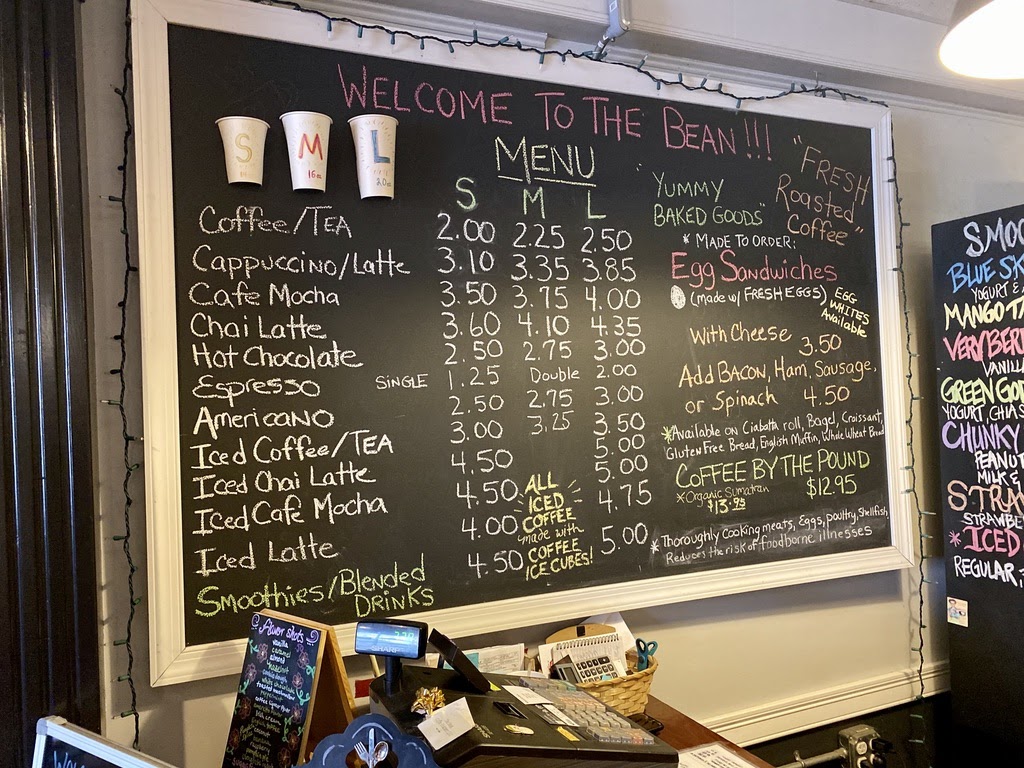 WELCOME TO THE BEAN!!!
S
M
16oz
L
20oz
MENU
S M L
Coffee/TEA 2.00 2.25 2.50
Cappuccino/Latte 3.10 3.35 3.85
Cafe Mocha 3.50 3.75 4.00
Chai Latte 3.60 4.10 4.35
Hot Chocolate 2.50 2.75 3.00
Espresso SINGLE 1.25 Double 2.00
Americano 2.50 2.75 3.00
Iced Coffee/TEA 3.00 3.25 3.50
Iced Chai Latte 4.50 5.00
Iced Cafe Mocha 4.50 5.00
Iced Latte 4.00 4.75
Smoothies/Blended DRINKS 4.50 5.00
ALL
ICED
COFFEE
made with
COFFEE
ICE CUBES!
"YUMMY
BAKED GOODS"
"FRESH
Roasted
Coffee"
* MADE TO ORDER:
Egg Sandwiches
(made w/ FRESH EGGS)
EGG
WHITES
Available
With Cheese 3.50
Add BACON, Ham, Sausage,
or Spinach 4.50
*Available on Ciabatta roll, Bagel, Croissant,
Gluten Free Bread, English Muffin, Whole Wheat Bread
COFFEE BY THE POUND
$12.95
*Organic Sumatran
$13.95
*Thoroughly cooking meats, Eggs, poultry, Shellfish,
Reduces the risk of foodborne illnesses
SMOO
BLUE SK
YOGURT &
MANGO-TA
VERY BER
VANIL
GREEN GOD
YOGURT, CHIA S
CHUNKY
PEANUT
MILK &
STRA
STRAWBE
*ICED
REGULAR,
flavor shots
vanilla
caramel
almond
hazelnut
SHARP